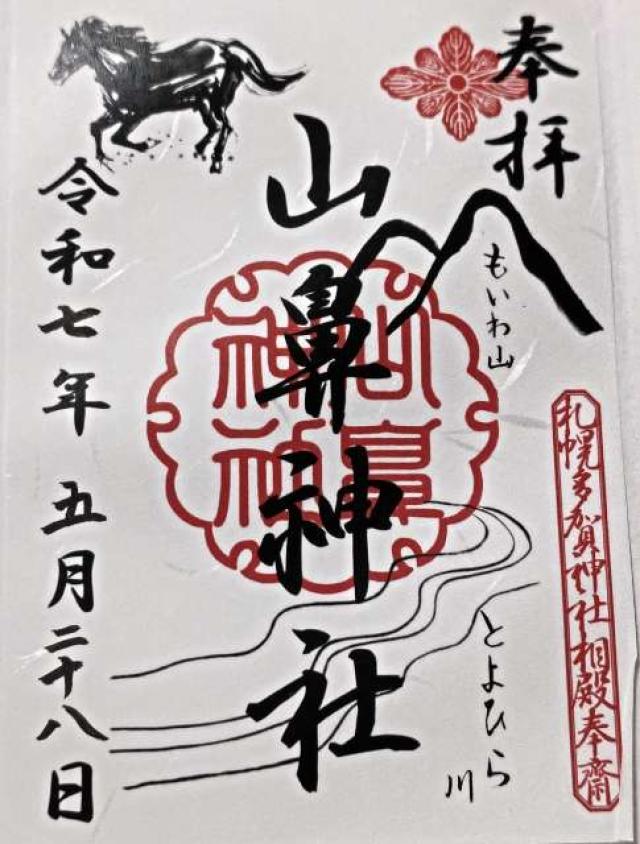 奉拝
もいわ山
山鼻神社
山鼻
神社
とよひら川
令和七年 五月二十八日
札幌多賀神社相殿奉齋